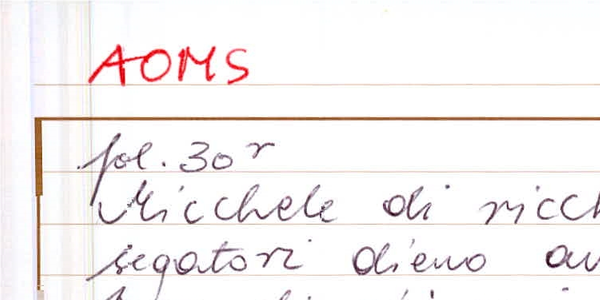 AOMS
fol. 30 r
Micchele di ricch
segatori dieno av